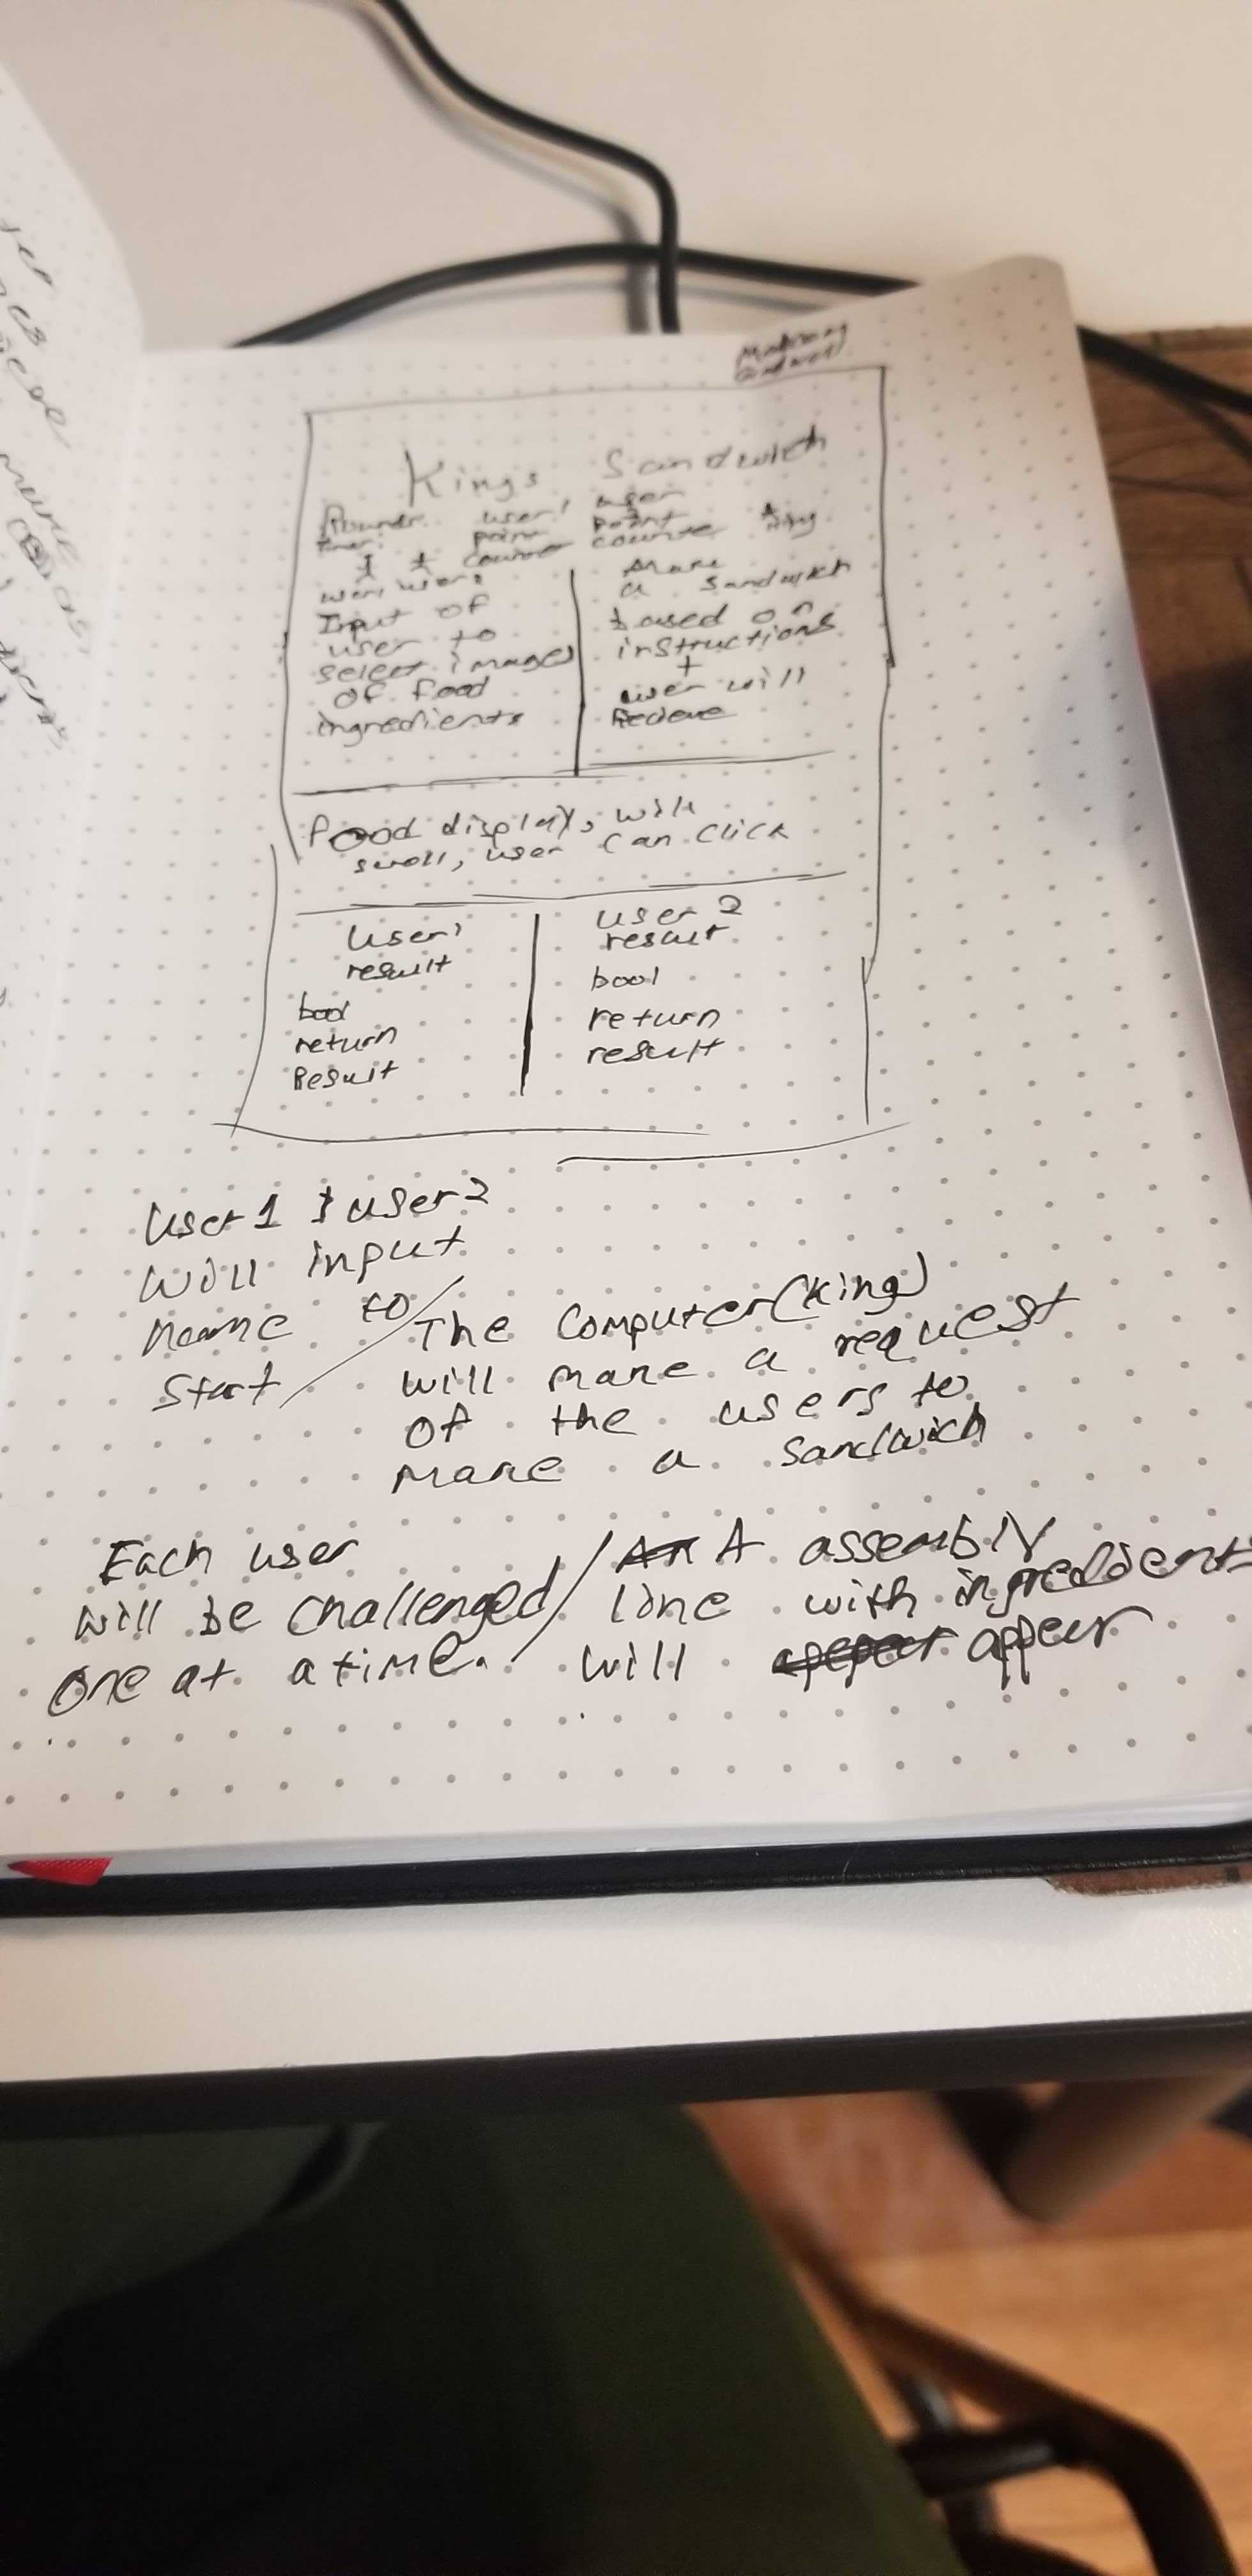 Kings Sandwich
user 1 user
timer: point point King
counter counter
Input of
user to
select images
of food
ingredients
make
a sandwich
based on
instructions
+
user will
Recieve
Food display, will
scroll, user can click
User 1
result
bool
return
Result
user 2
result
bool
return
result
User 1 & user 2
will input
name to
Start
The Computer (King)
will make a request
of the users to
make a sandwich
Each user
will be challenged
one at a time.
A assembly
line with ingredients
will appear